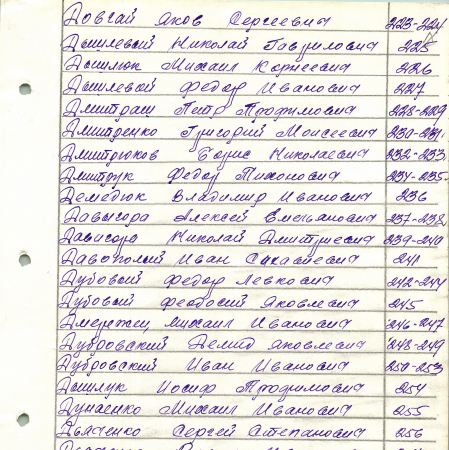 Довгай Яков Сергеевич 223-224
Дышлевый Николай Гаврилович 225
Дышлюк Михаил Корнеевич 226
Дышлевой Федор Иванович 227
Дмитраш Петр Трофимович 228-229
Дмитренко Григорий Моисеевич 230-231
Дмитрюков Борис Николаевич 232-233
Дмитрук Федор Тихонович 234-235
Демедюк Владимир Иванович 236
Давысора Алексей Емельянович 237-238
Дависора Николай Дмитриевич 239-240
Иван 241
Дубовый Федор Левкович 242-244
Дубовый Феодосий Яковлевич 245
Михаил Иванович 246-247
Дубровский Демид Яковлевич 248-249
Дубровский Иван Иванович 250-253
Дышлук Иосиф Трофимович 254
Дунаенко Михаил Иванович 255
Дьяченко Сергей Степанович 256